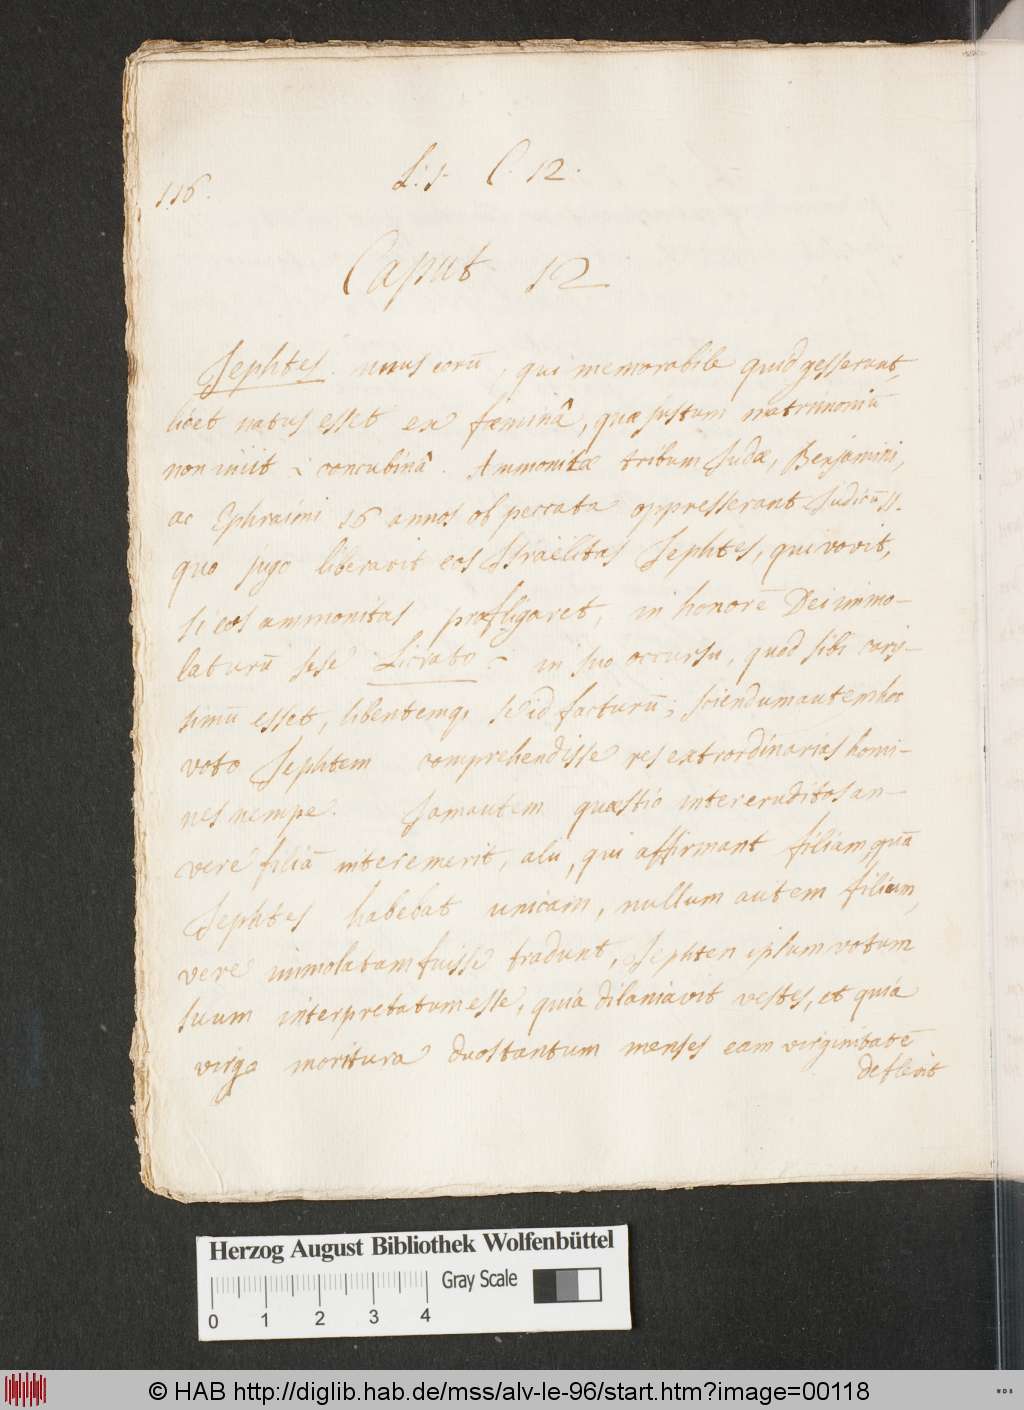 116.
L: 1. C. 12.
Caput 12
Jephtes unus eorū, qui memorabile quid gesserunt,
licet natus esset ex fœminâ, quæ justum matrimoniū
non iniit i concubinâ. Ammonitæ tribum Judæ, Benjamini,
ac Ephraimi 16 annos ob peccata oppresserant Judicū 11.
quo jugo liberavit eos Israëlitas Jephtes, qui vovit,
si eos ammonitas profligaret, in honorē Dei immo-
laturū sese in suo occursu, quod sibi caris-
simū esset, libentemq, id facturū; sciendum autem hoc
voto Jephtem comprehendisse res extrordinarias homi-
nes nempe. Jam autem quæstio inter eruditos an-
vere filiā interemerit, alii, qui affirmant filiam, quā
Jephtes habebat unicam, nullum autem filium,
vere immolatam fuisse tradunt, Jephten ipsum votum
suum interpretatum esse, quia dilaniavit vestes, et quia
virgo moritura duos tantum menses eam virginitatē
deflevit
Herzog August Bibliothek Wolfenbüttel
Gray Scale
0 1 2 3 4
© HAB http://diglib.hab.de/mss/alv-le-96/start.htm?image=00118